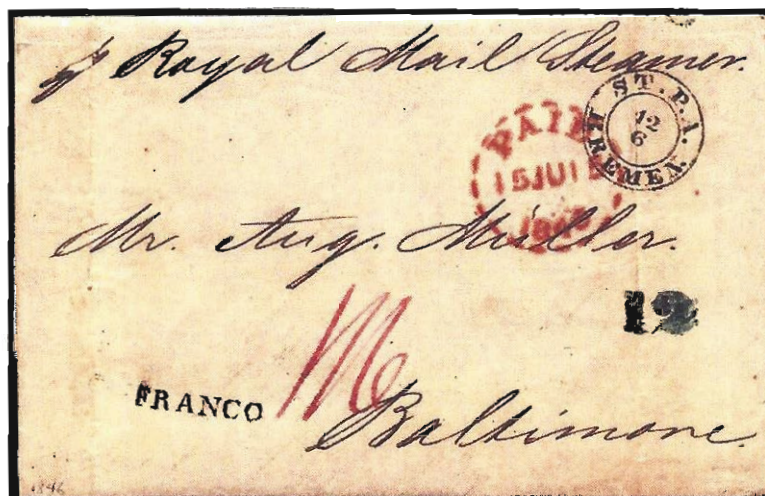 pr Royal Mail Steamer.
H ST. P. A.
12
6
BREMEN.
PAID
15 JU
Mr. Aug. Müller.
12
FRANCO
Baltimore.
1846